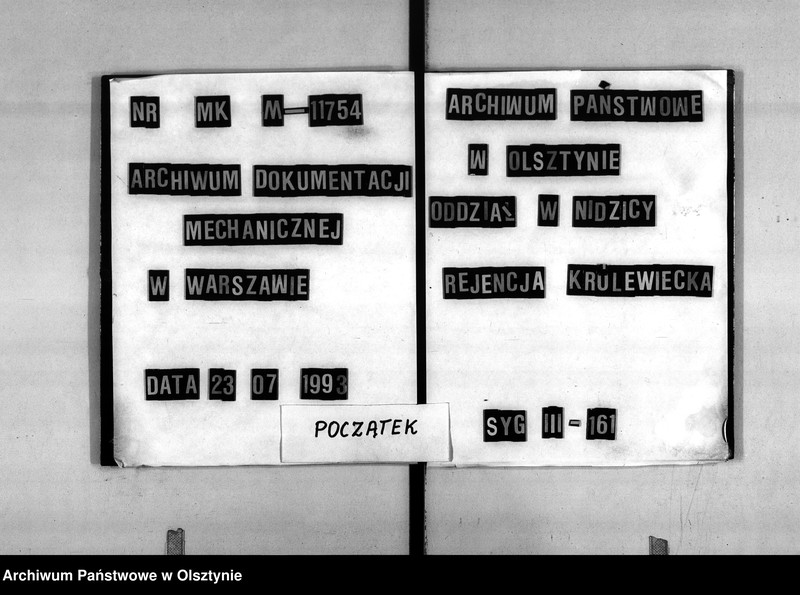 NR MK M-11754
ARCHIWUM DOKUMENTACJI
MECHANICZNEJ
W WARSZAWIE
DATA 23 07 1993
POCZĄTEK
ARCHIWUM PAŃSTWOWE
W OLSZTYNIE
ODDZIAŁ W NIDZICY
REJENCJA KRÓLEWIECKA
SYG III-161
Archiwum Państwowe w Olsztynie